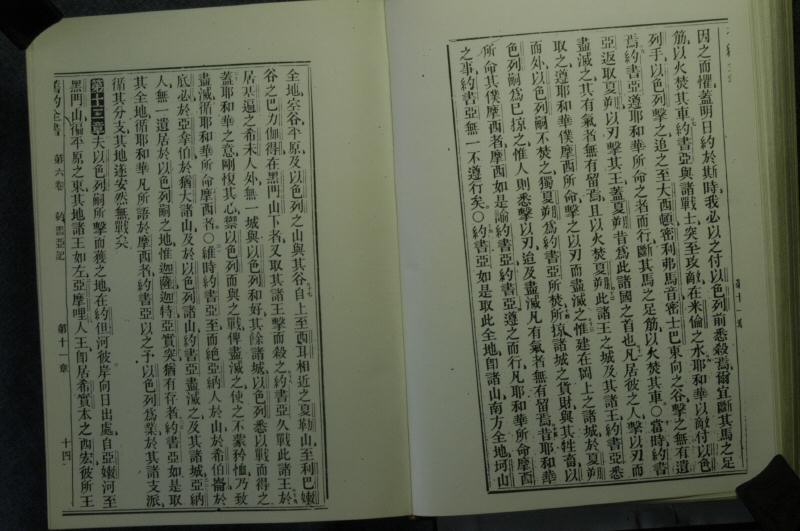 因之而懼蓋明日約於斯時我必以之付以色列前悉殺焉爾宜斷其馬之足
筋以火焚其車約書亞與諸戰士突至攻敵在米倫之水耶和華以敵付以色
列手以色列擊之追之至大西頓密利弗馬音密士巴東向之谷擊之無有遺
焉約書亞遵耶和華所命之者而行斷其馬之足筋以火焚其車〇當時約書
亞返取夏朔以刃擊其王蓋夏朔昔為此諸國之首也凡居彼之人擊以刃而
盡滅之其有氣者無有留焉且以火焚夏朔此諸王之城及其諸王約書亞悉
取之遵耶和華僕摩西所命擊之以刃而盡滅之惟建在岡上之諸城於夏朔
而外以色列嗣不焚之獨夏朔為約書亞所焚所掠諸城之貨財與其牲畜以
色列嗣為已掠之惟人則悉擊以刃迫及盡滅凡有氣者無有留焉昔耶和華
所命其僕摩西者摩西如是諭約書亞約書亞遵之而行凡耶和華所命摩西
之事約書亞無一不遵行矣〇約書亞如是取此全地卽諸山南方全地坷山
全地宗谷平原及以色列之山與其谷自上至西耳相近之夏勒山至利巴嫩
谷之巴力伽得在黑門山下者又取其諸王擊而殺之約書亞久戰此諸王於
居基遍之希未人外無一城與以色列和好其餘諸城以色列悉以戰而得之
蓋耶和華之意剛愎其心禦以色列而與之戰俾盡滅之使之不蒙矜恤乃致
盡滅循耶和華所命摩西者〇維時約書亞至而絕亞納人於山於希伯崙於
底必於亞拿伯於猶大諸山及於以色列諸山約書亞盡滅之及其諸城亞納
人無一遺居於以色列嗣之地惟迦薩迦特亞實突猶有存者約書亞如是取
其全地循耶和華凡所語於摩西者約書亞以之予以色列為業於其諸支派
循其分支其地遂安然無戰矣
第十二章夫以色列嗣所擊而獲之地在約但河彼岸向日出處自亞嫩河至
黑門山徧平原之東其地諸王如左亞摩哩人王卽居希實本之西宏彼所王
舊約全書 第六卷 約書亞記 第十一章 十四